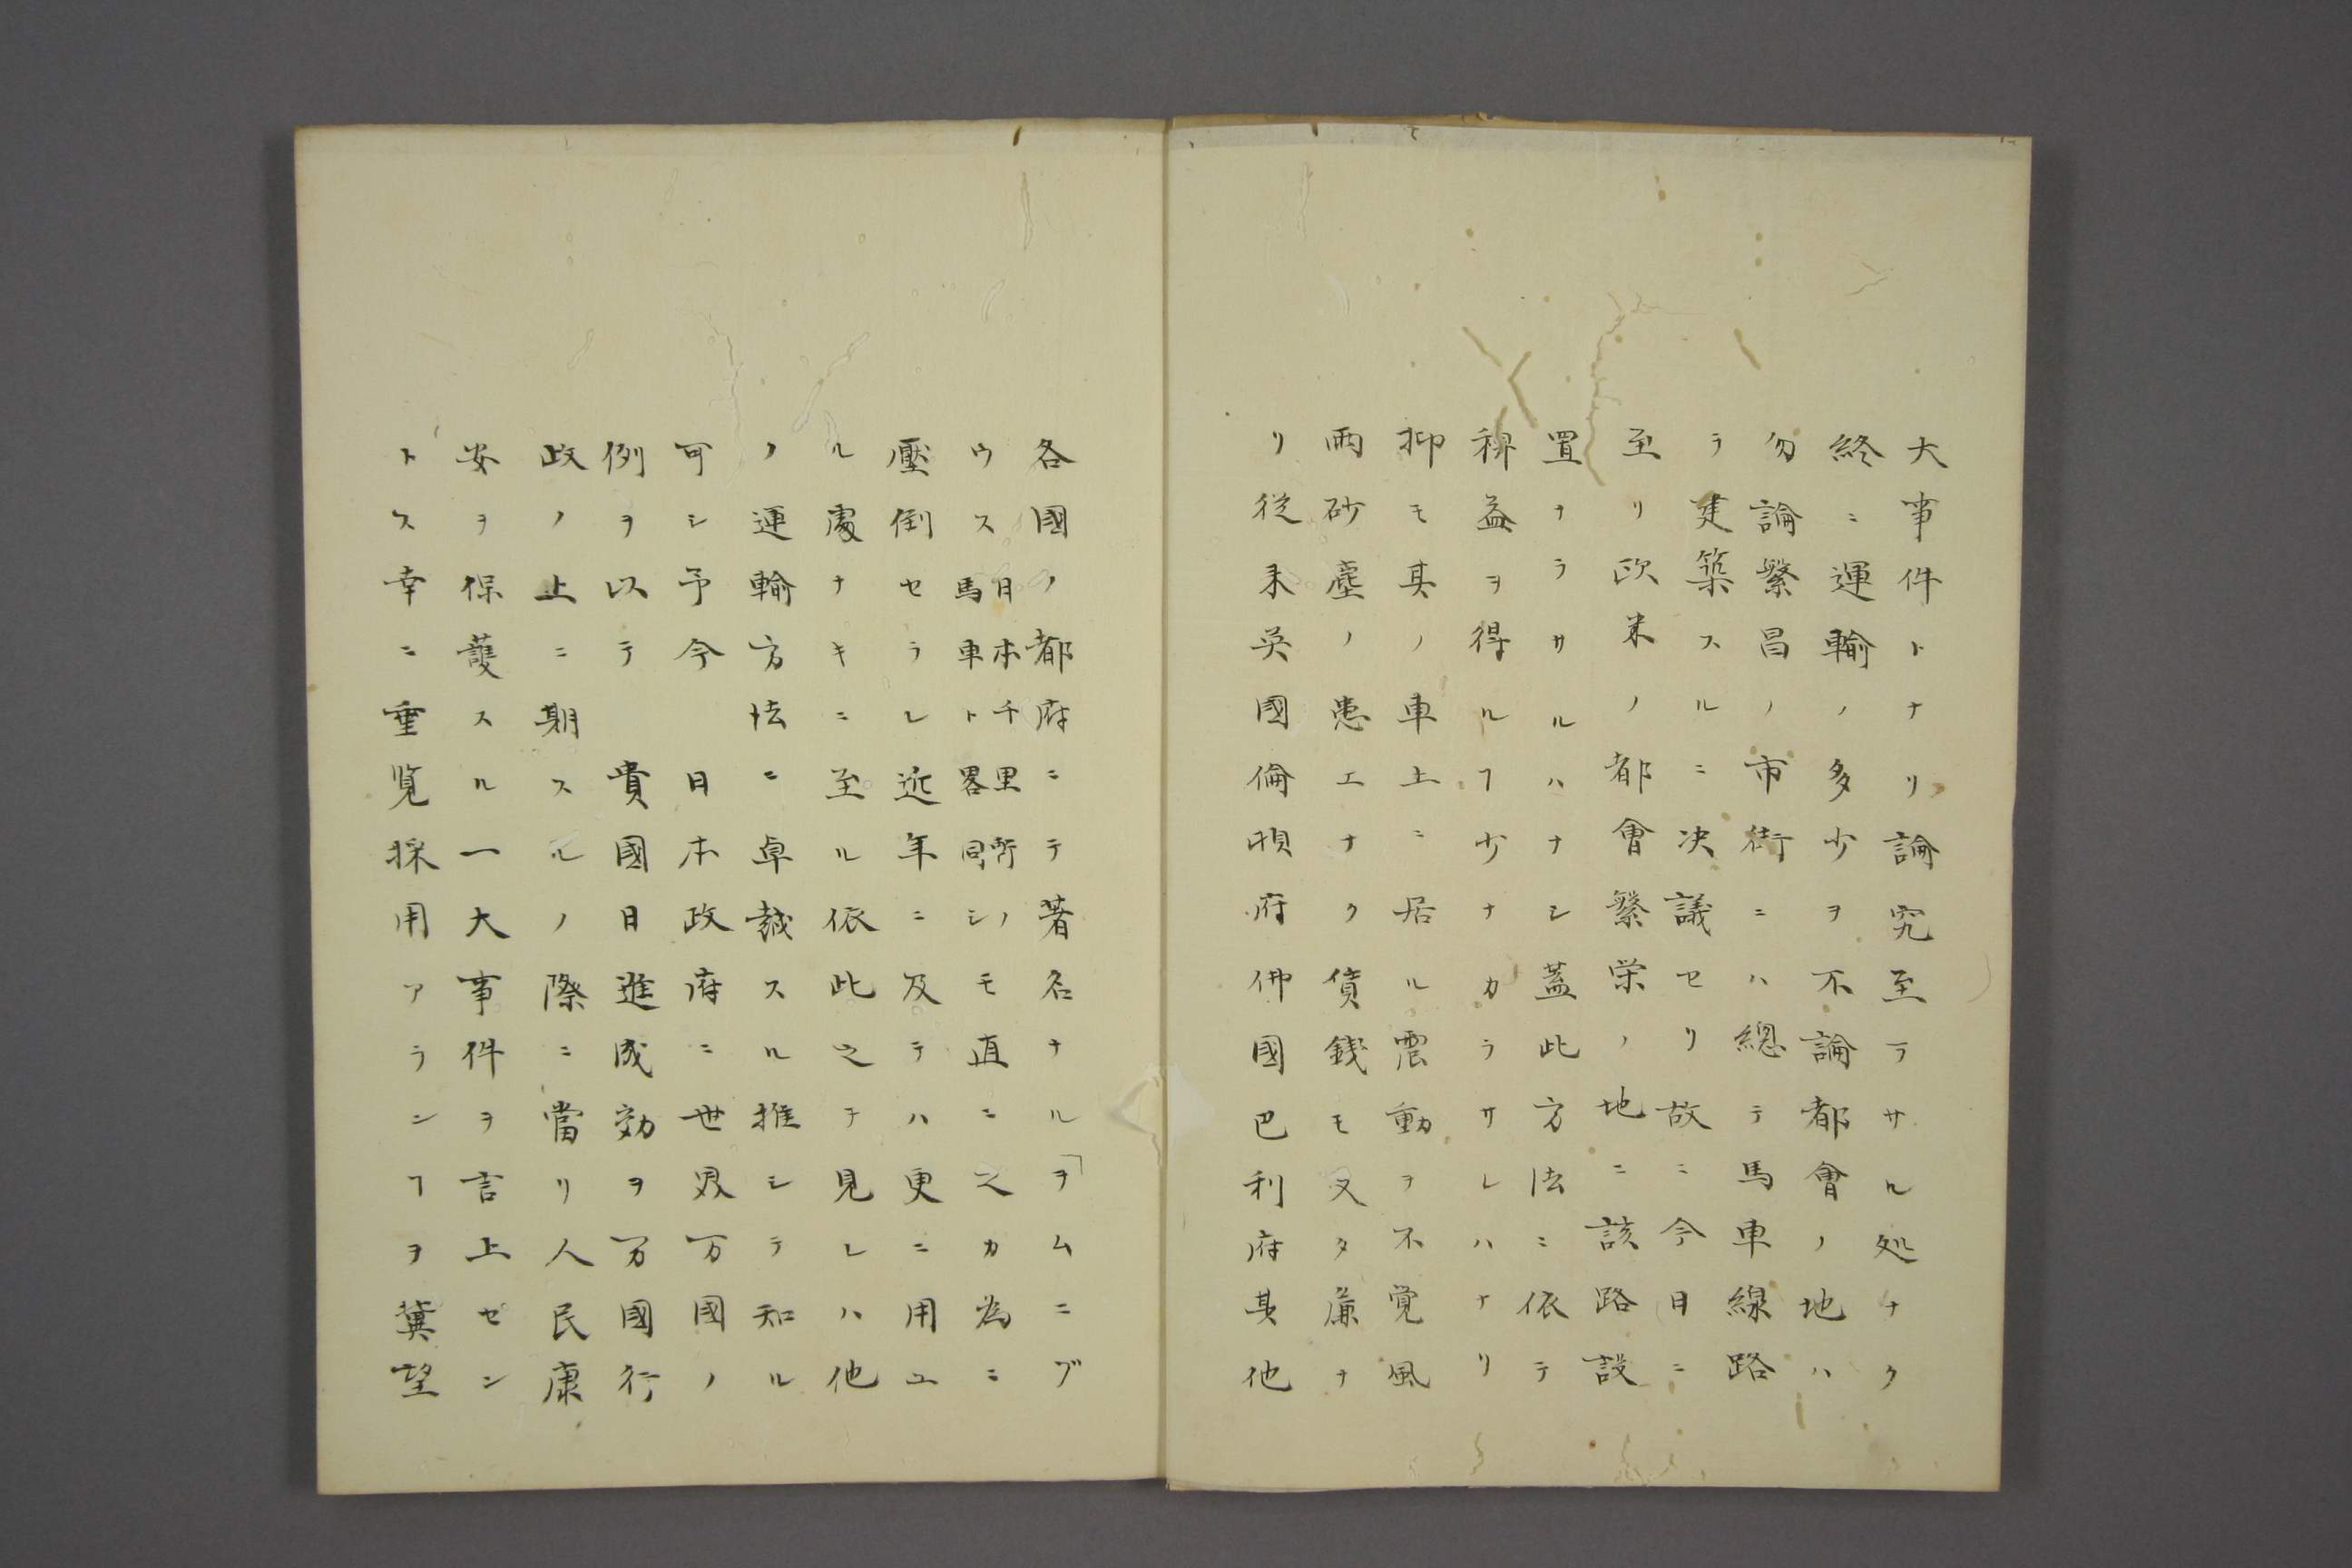 大事件トナリ論究至ラサル処ナク
終ニ運輸ノ多少ヲ不論都會ノ地ハ
勿論繁昌ノ市街ニハ總テ馬車線路
ヲ建築スルニ决議セリ故ニ今日ニ
至リ欧米ノ都會繁栄ノ地ニ該路設
置ナラサルハナシ蓋此方法ニ依テ
稗益ヲ得ルヿ少ナカラサレハナリ
抑モ其ノ車上ニ居ル震動ヲ不覚風
雨砂塵ノ患エナク債錢モ又タ廉ナ
リ従来英國倫頓府佛國巴利府其他
各國ノ都府ニテ著名ナル「ヲムニブ
ウス日本千里所ノ馬車ト畧同シモ直ニ之カ為ニ
壓倒セラレ近年ニ及テハ更ニ用ユ
ル處ナキニ至ル依此之ヲ見レハ他
ノ運輸方法ニ卓越スル推シテ知ル
可シ予今 日本政府ニ世界万國ノ
例ヲ以テ 貴國日進成効ヲ万國行
政ノ上ニ期スルノ際ニ當リ人民康
安ヲ保護スル一大事件ヲ言上セン
トス幸ニ垂覧採用アランヿヲ冀望